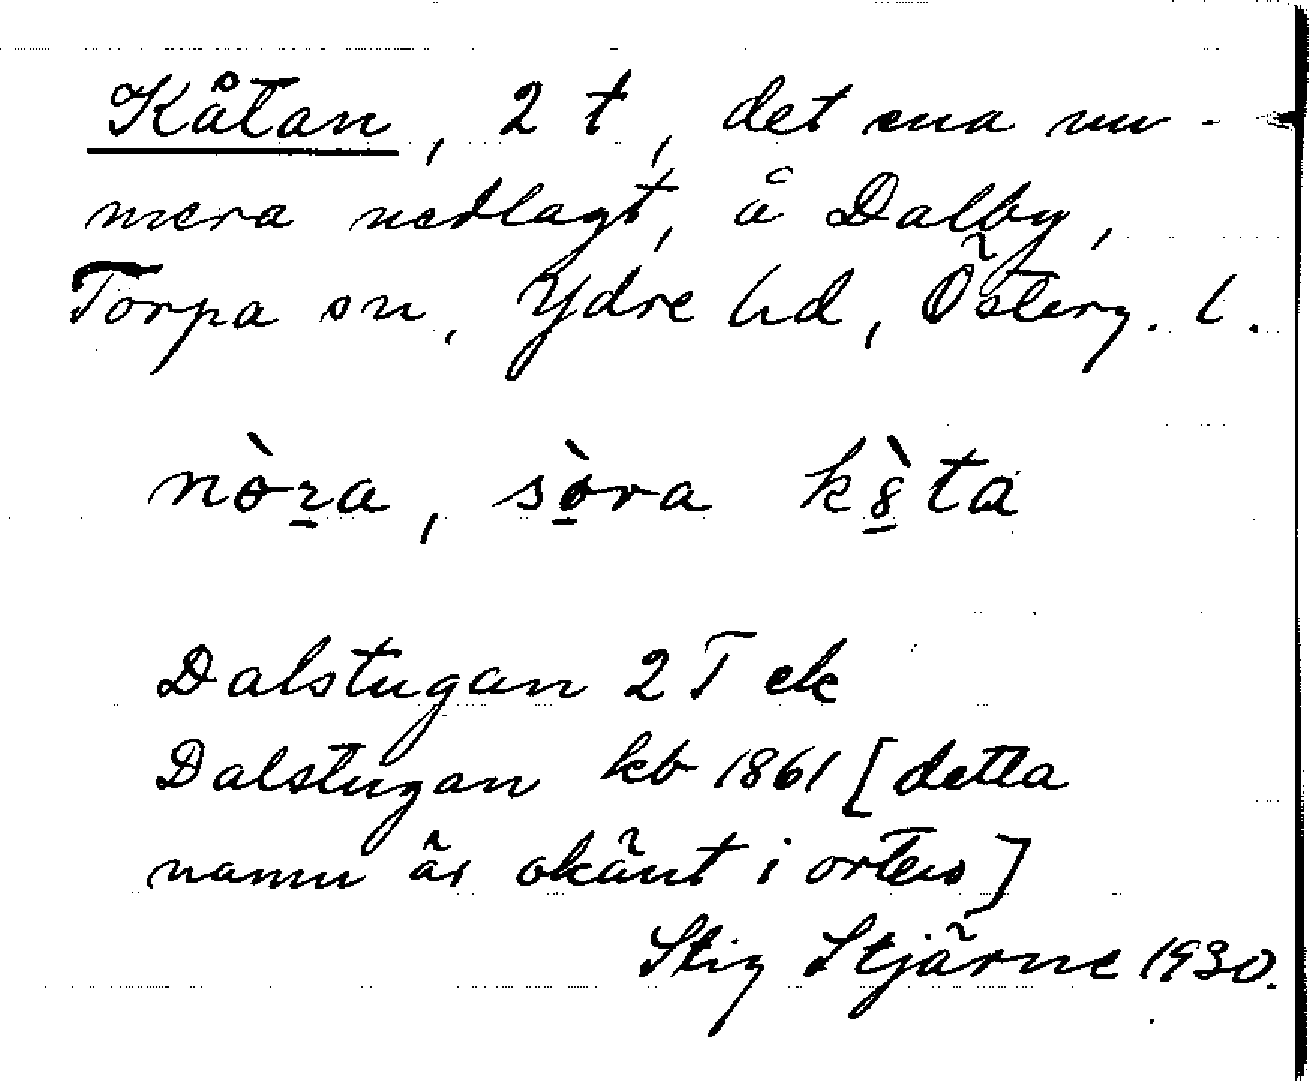 Kåtan, 2 t, det ena nu-
mera nedlagt, å Dalby,
Torpa sn, Ydre hd, Österg. l.
nòra, sòra kòta
Dalstugan 2 T ek
Dalstugan kb 1861 [detta
namn är okänt i orten]
Stig Stjärne 1930.